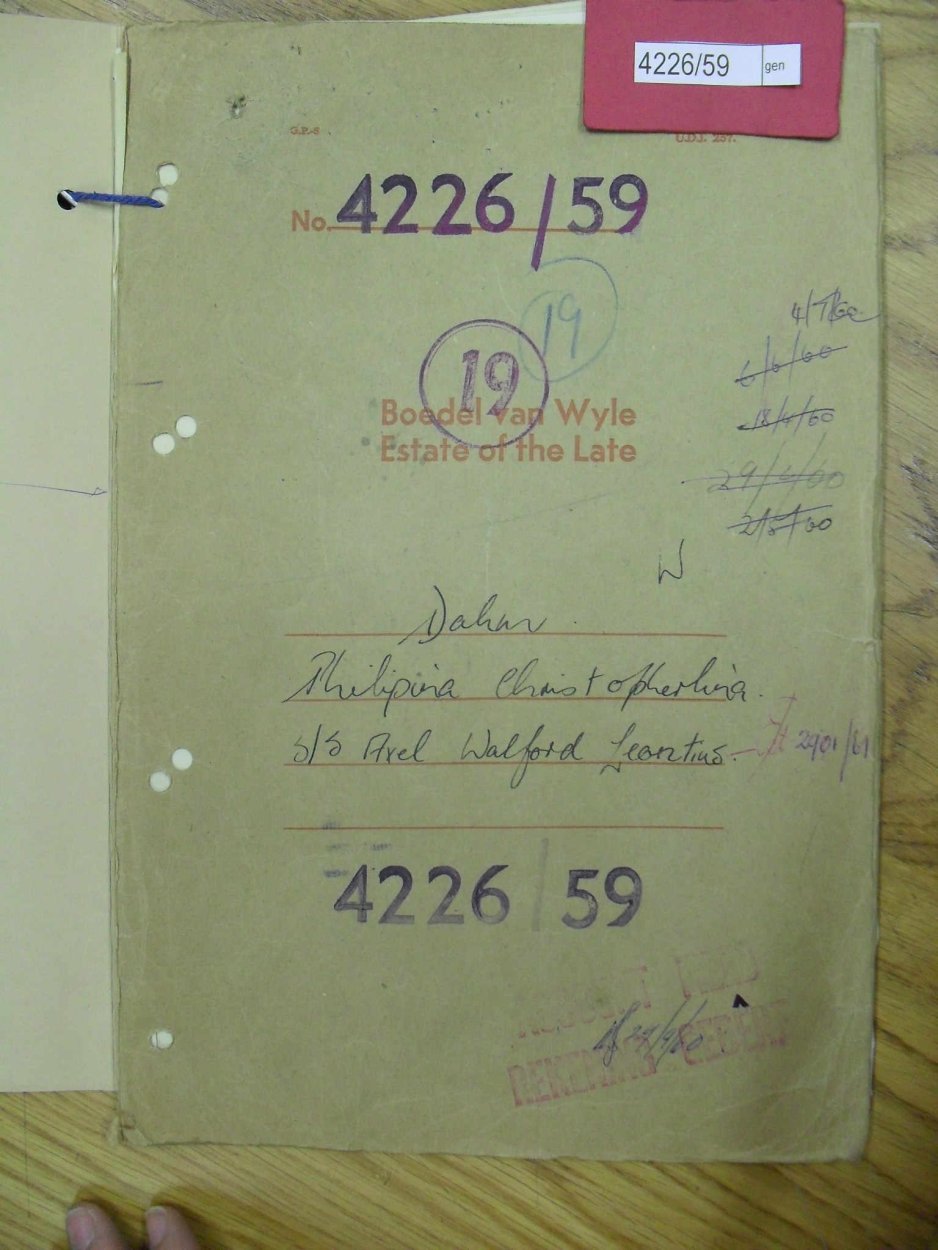 4226/59 gen
G.P.-S U.D.J. 257.
No. 4226/59
19
19
4/7/60
6/6/60
Boedel van Wyle
18/4/60
Estate of the Late
29/4/60
2/5/60
W
Dahw
Philipina Christopherlina.
s/s Axel Walford Leontius. 2901/61
4226/59
ACCOUNT FILED
29/9/60
REKENING GEDEPO